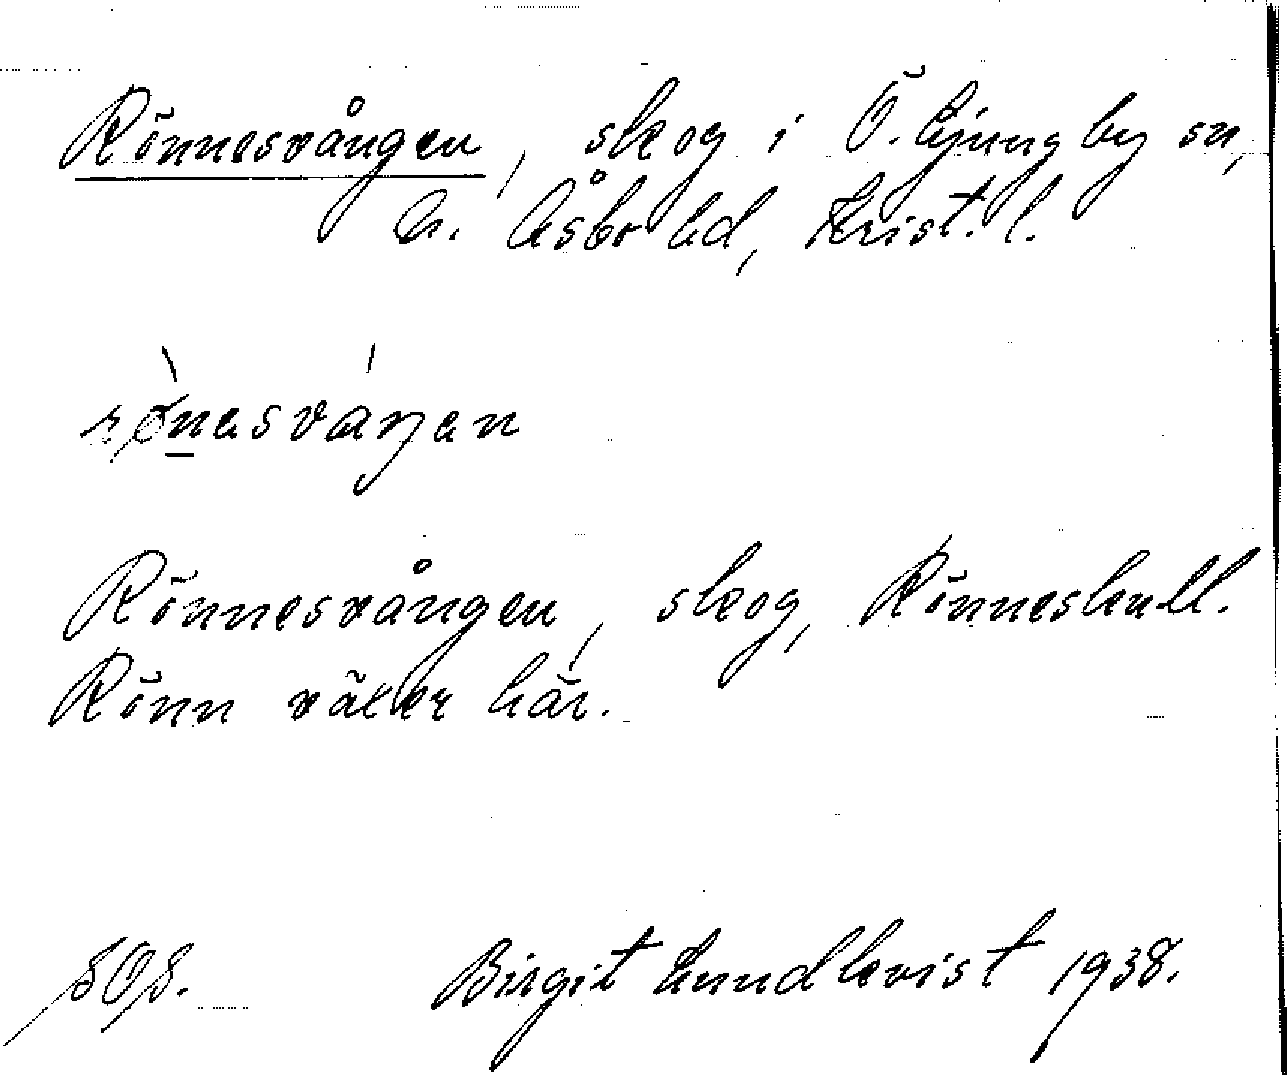 Rönnesvången, skog i Ö. Ljungby sn,
N. Åsbo hd, Krist. l.
rønasváŋan
Rönnesvången, skog, Rönneskull.
Rönn växer här.
Birgit Lundkvist 1938.